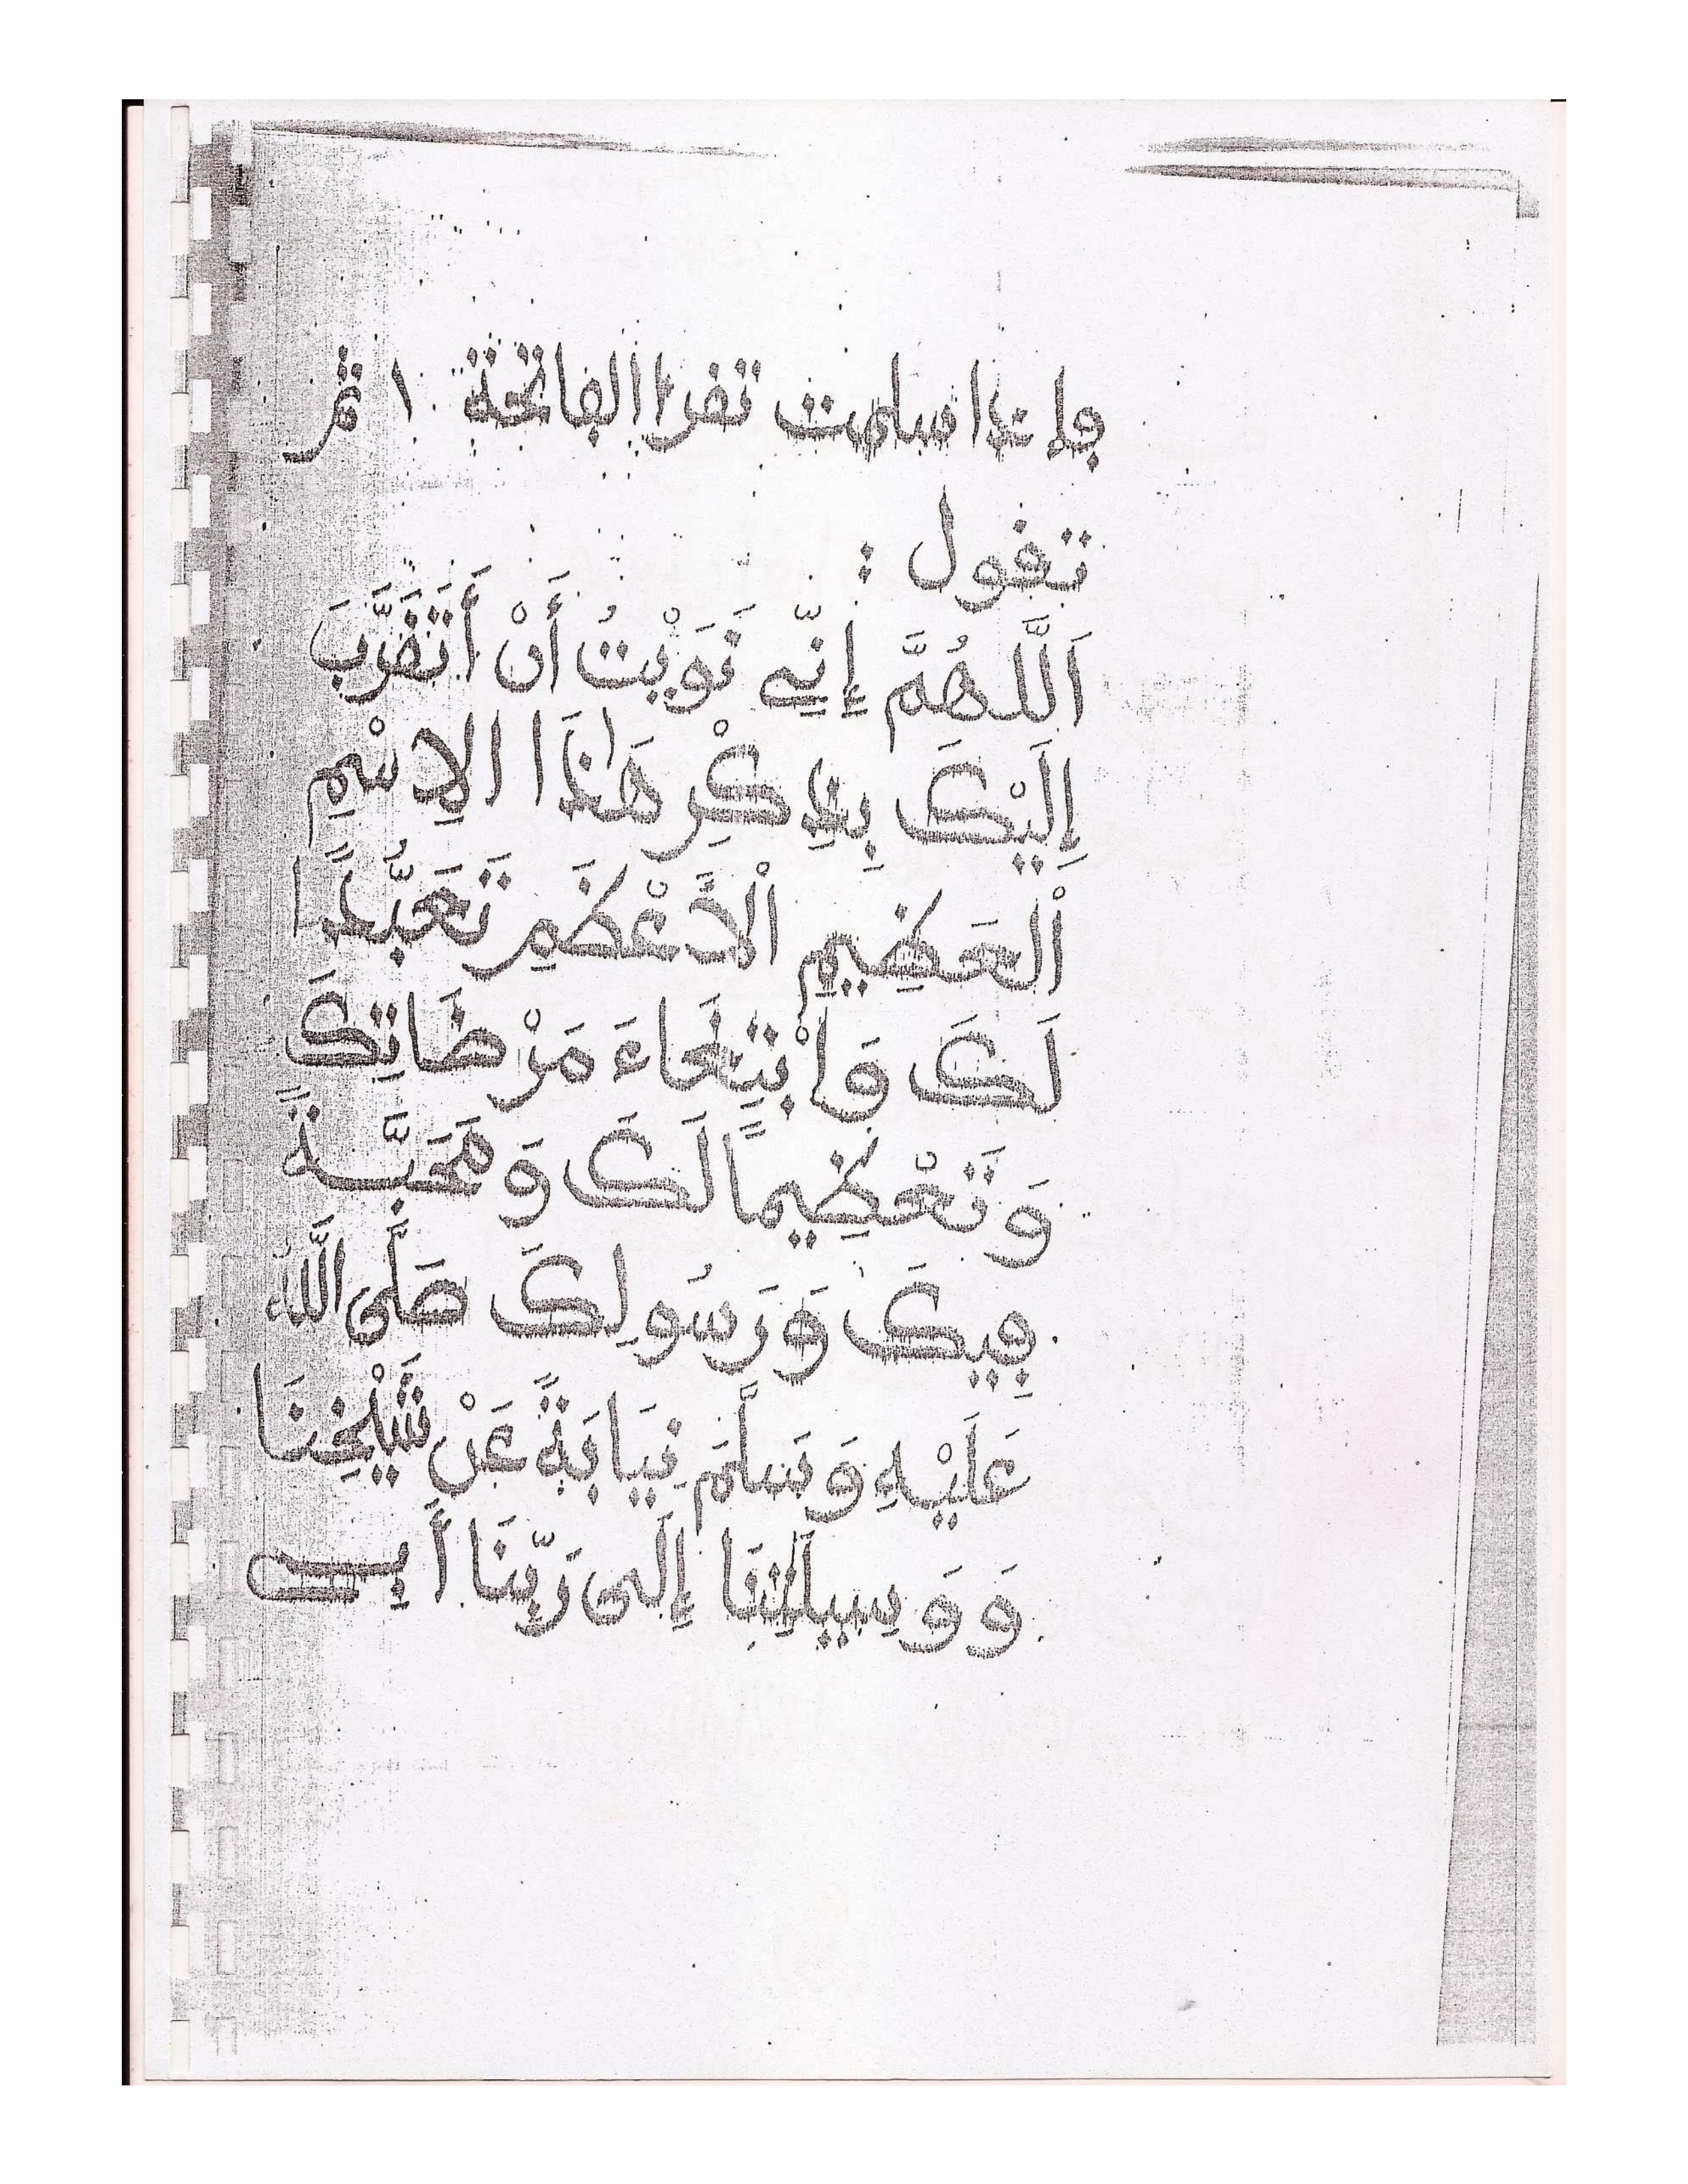 فإذا سلمت تقرأ الفاتحة ١ ثم
تقول :
اَللَّهُمَّ إِنِّي نَوَيْتُ أَنْ أَتَقَرَّبَ
إِلَيْكَ بِذِكْرِ هَٰذَا الِاسْمِ
اْلعَظِيمِ اْلاَعْظَمِ تَعَبُّدًا
لَكَ وَابْتِغَاءَ مَرْضَاتِكَ
وَتَعْظِيمًا لَكَ وَمَحَبَّةً
فِيكَ وَرَسُولِكَ صَلَّى اللَّهُ
عَلَيْهِ وَسَلَّمَ نِيَابَةً عَنْ شَيْخِنَا
وَوَسِيلَتِنَا إِلَى رَبِّنَا أَبِي